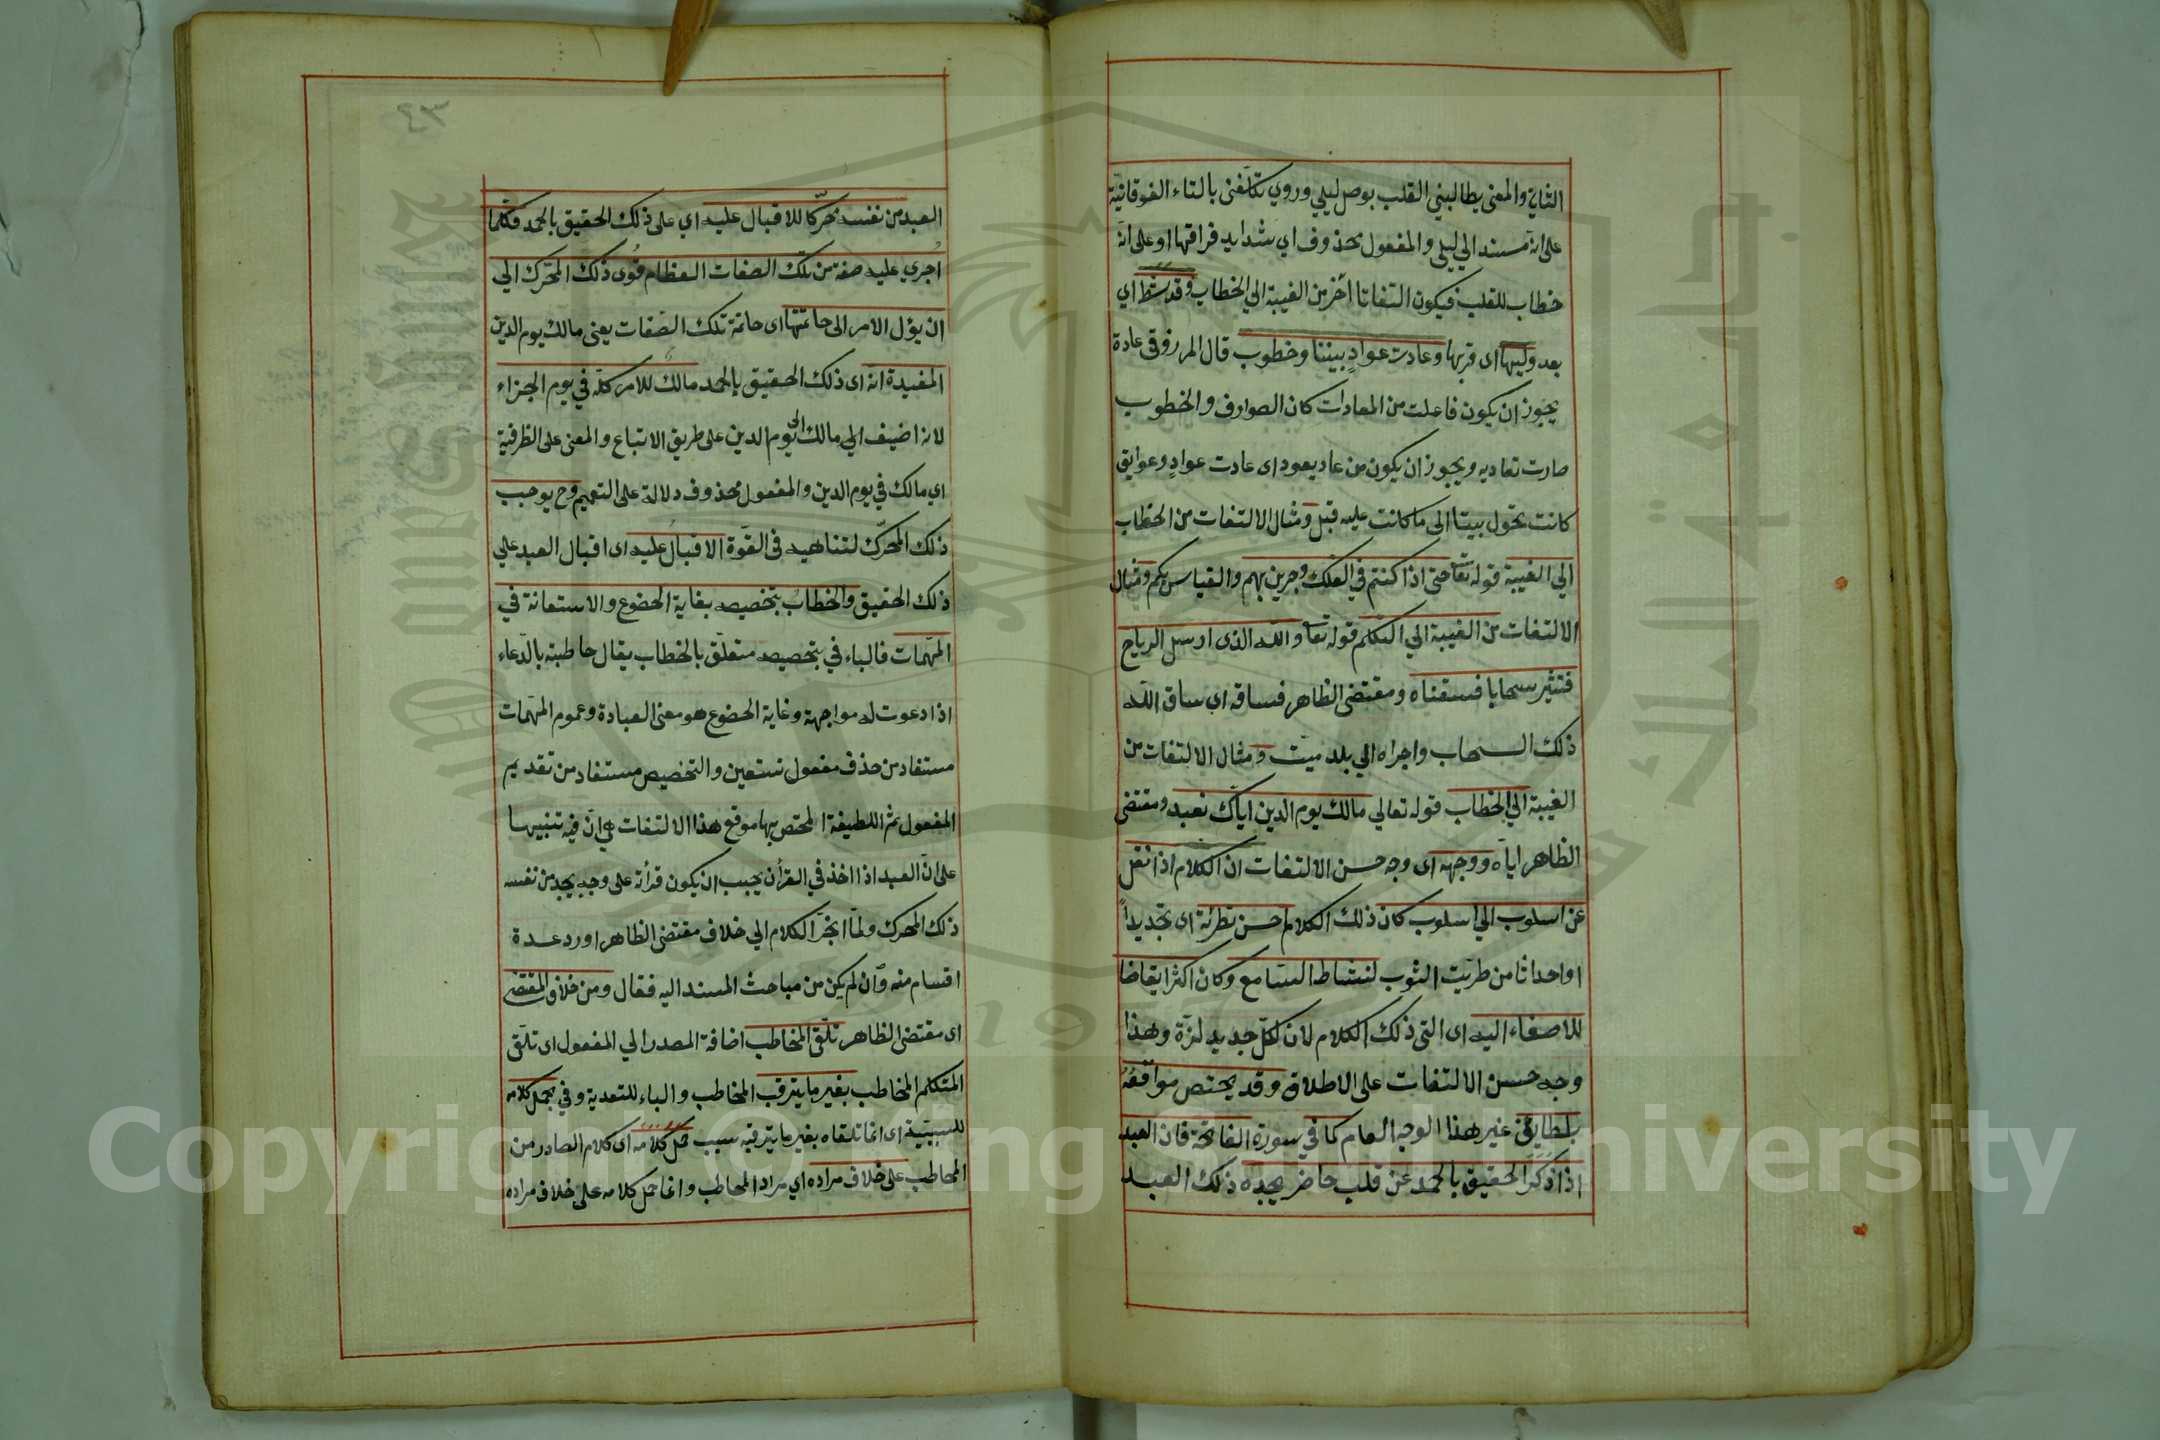 الثاني والمعنى يطالبني القلب بوصل ليلي وروي تكلفني بالتاء الفوقانية
على انه مسند الي ليلى والمفعول محذوف اي شدايد فراقها او على انه
خطاب للقلب فيكون التفاتا آخر من الغيبة الي الخطاب وقد شط اي
بعد وليها اى قربها وعادت عوادٍ بيننا وخطوب قال المرزوقي عادة
يجوز ان يكون فاعلت من المعادات كان الصوارف والخطوب
صارت تعاديه ويجوز ان يكون من عاد يعود اى عادت عوادٍ وعوايق
كانت تحول بيننا الى ما كانت عليه قبل ومثال الالتفات من الخطاب
الي الغيبة قوله تعا حتى اذا كنتم في الفلك وجرين بهم والقياس بكم ومثال
الالتفات من الغيبة الي التكلم قوله تعا والله الذى ارسل الرياح
فتثير سحابا فسقناه ومقتضى الظاهر فساقه اى ساق الله
ذلك السحاب واجراه الي بلد ميّت ومثال الالتفات من
الغيبة الي الخطاب قوله تعالي مالك يوم الدين اياك نعبد ومقتضى
الظاهر اياه ووجهه اى وجه حسن الالتفات ان الكلام اذا نقل
عن اسلوب الي اسلوب كان ذلك الكلام احسن تطرئة اى تجديداً
او احداثا من طرّيت الثوب لنشاط السامع وكان اكثر ايقاضا
للاصغاء اليه اى الى ذلك الكلام لان لكل جديد لذة وهذا
وجه حسن الالتفات على الاطلاق وقد يختص مواقعه
بلطايف غير هذا الوجه العام كما في سورة الفاتحة فان العبد
اذا ذكر الحقيق بالحمد عن قلب حاضر يجد ه ذلك العبد
٤٣
العبد من نفسه محرّكا للاقبال عليه اي على ذلك الحقيق بالحمد فكلما
اُجري عليه صفة من تلك الصفات العظام قوى ذلك المحرّك الي
ان يؤل الامر الى خاتمتها اى خاتمة تلك الصفات يعنى مالك يوم الدين
المفيدة انه اى ذلك الحقيق بالحمد مالك للامر كلّه في يوم الجزاء
لانه اضيف الي مالك الى يوم الدين على طريق الاتباع والمعنى على الظرفية
اي مالك في يوم الدين والمفعول محذوف دلالة على التعميم وح يوجب
ذلك المحرّك لتناهيه في القوّة الاقبال عليه اى اقبال العبد علي
ذلك الحقيق والخطاب بتخصيصه بغاية الخضوع والاستعانة في
المهمّات فالباء في بتخصيصه متعلّق بالخطاب يقال خاطبته بالدّعاء
اذا دعوت له مواجهة وغاية الخضوع هو معنى العبادة وعموم المهمّات
مستفاد من حذف مفعول نستعين والتخصيص مستفاد من تقديم
المفعول ثم اللطيفة المختص بها موقع هذا الالتفات هي انّ فيه تنبيها
على انّ العبد اذا اخذ في القرأن يجب ان يكون قرأته على وجه يجد من نفسه
ذلك المحرك ولمّا انجرّ الكلام الي خلاف مقتضى الظاهر اورد عدة
اقسام منه وان لم يكن من مباحث المسند اليه فقال ومن خلاف المقتضى
اى مقتضى الظاهر تلّقى المخاطب اضافة المصدر الي المفعول اى تلّقى
المتكلم المخاطب بغير ما يترقب المخاطب والباء للتعدية وفي بحمل كلامه
للسببيّة اى انما تلقاه بغير ما يترقبه بسبب حمل كلامه اى كلام الصادر من
المخاطب على خلاف مراده اي مراد المخاطب وانما حمل كلامه على خلاف مراده